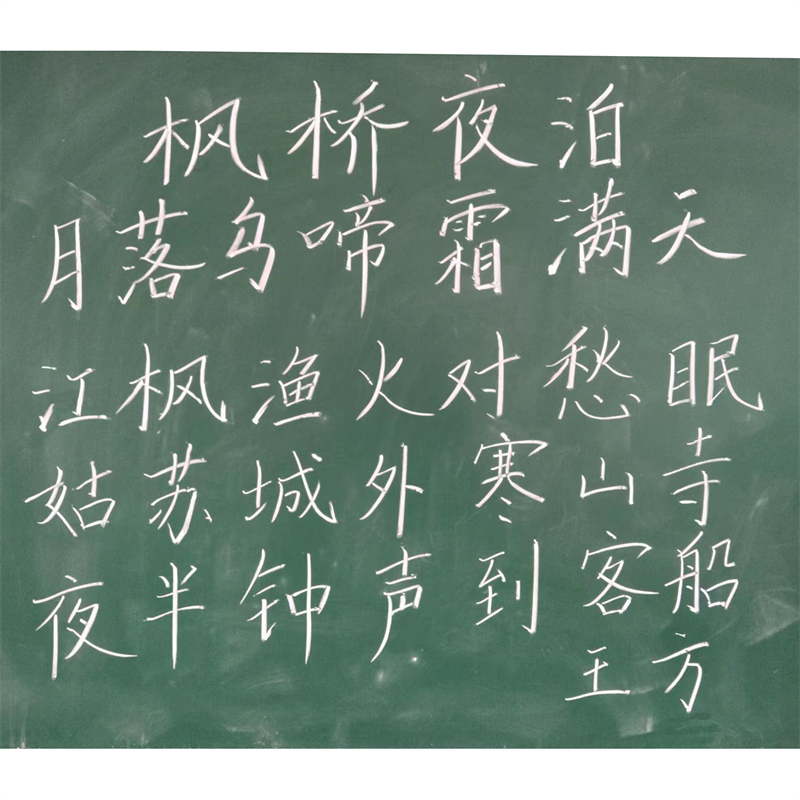 枫桥夜泊
月落乌啼霜满天
江枫渔火对愁眠
姑苏城外寒山寺
夜半钟声到客船
王方